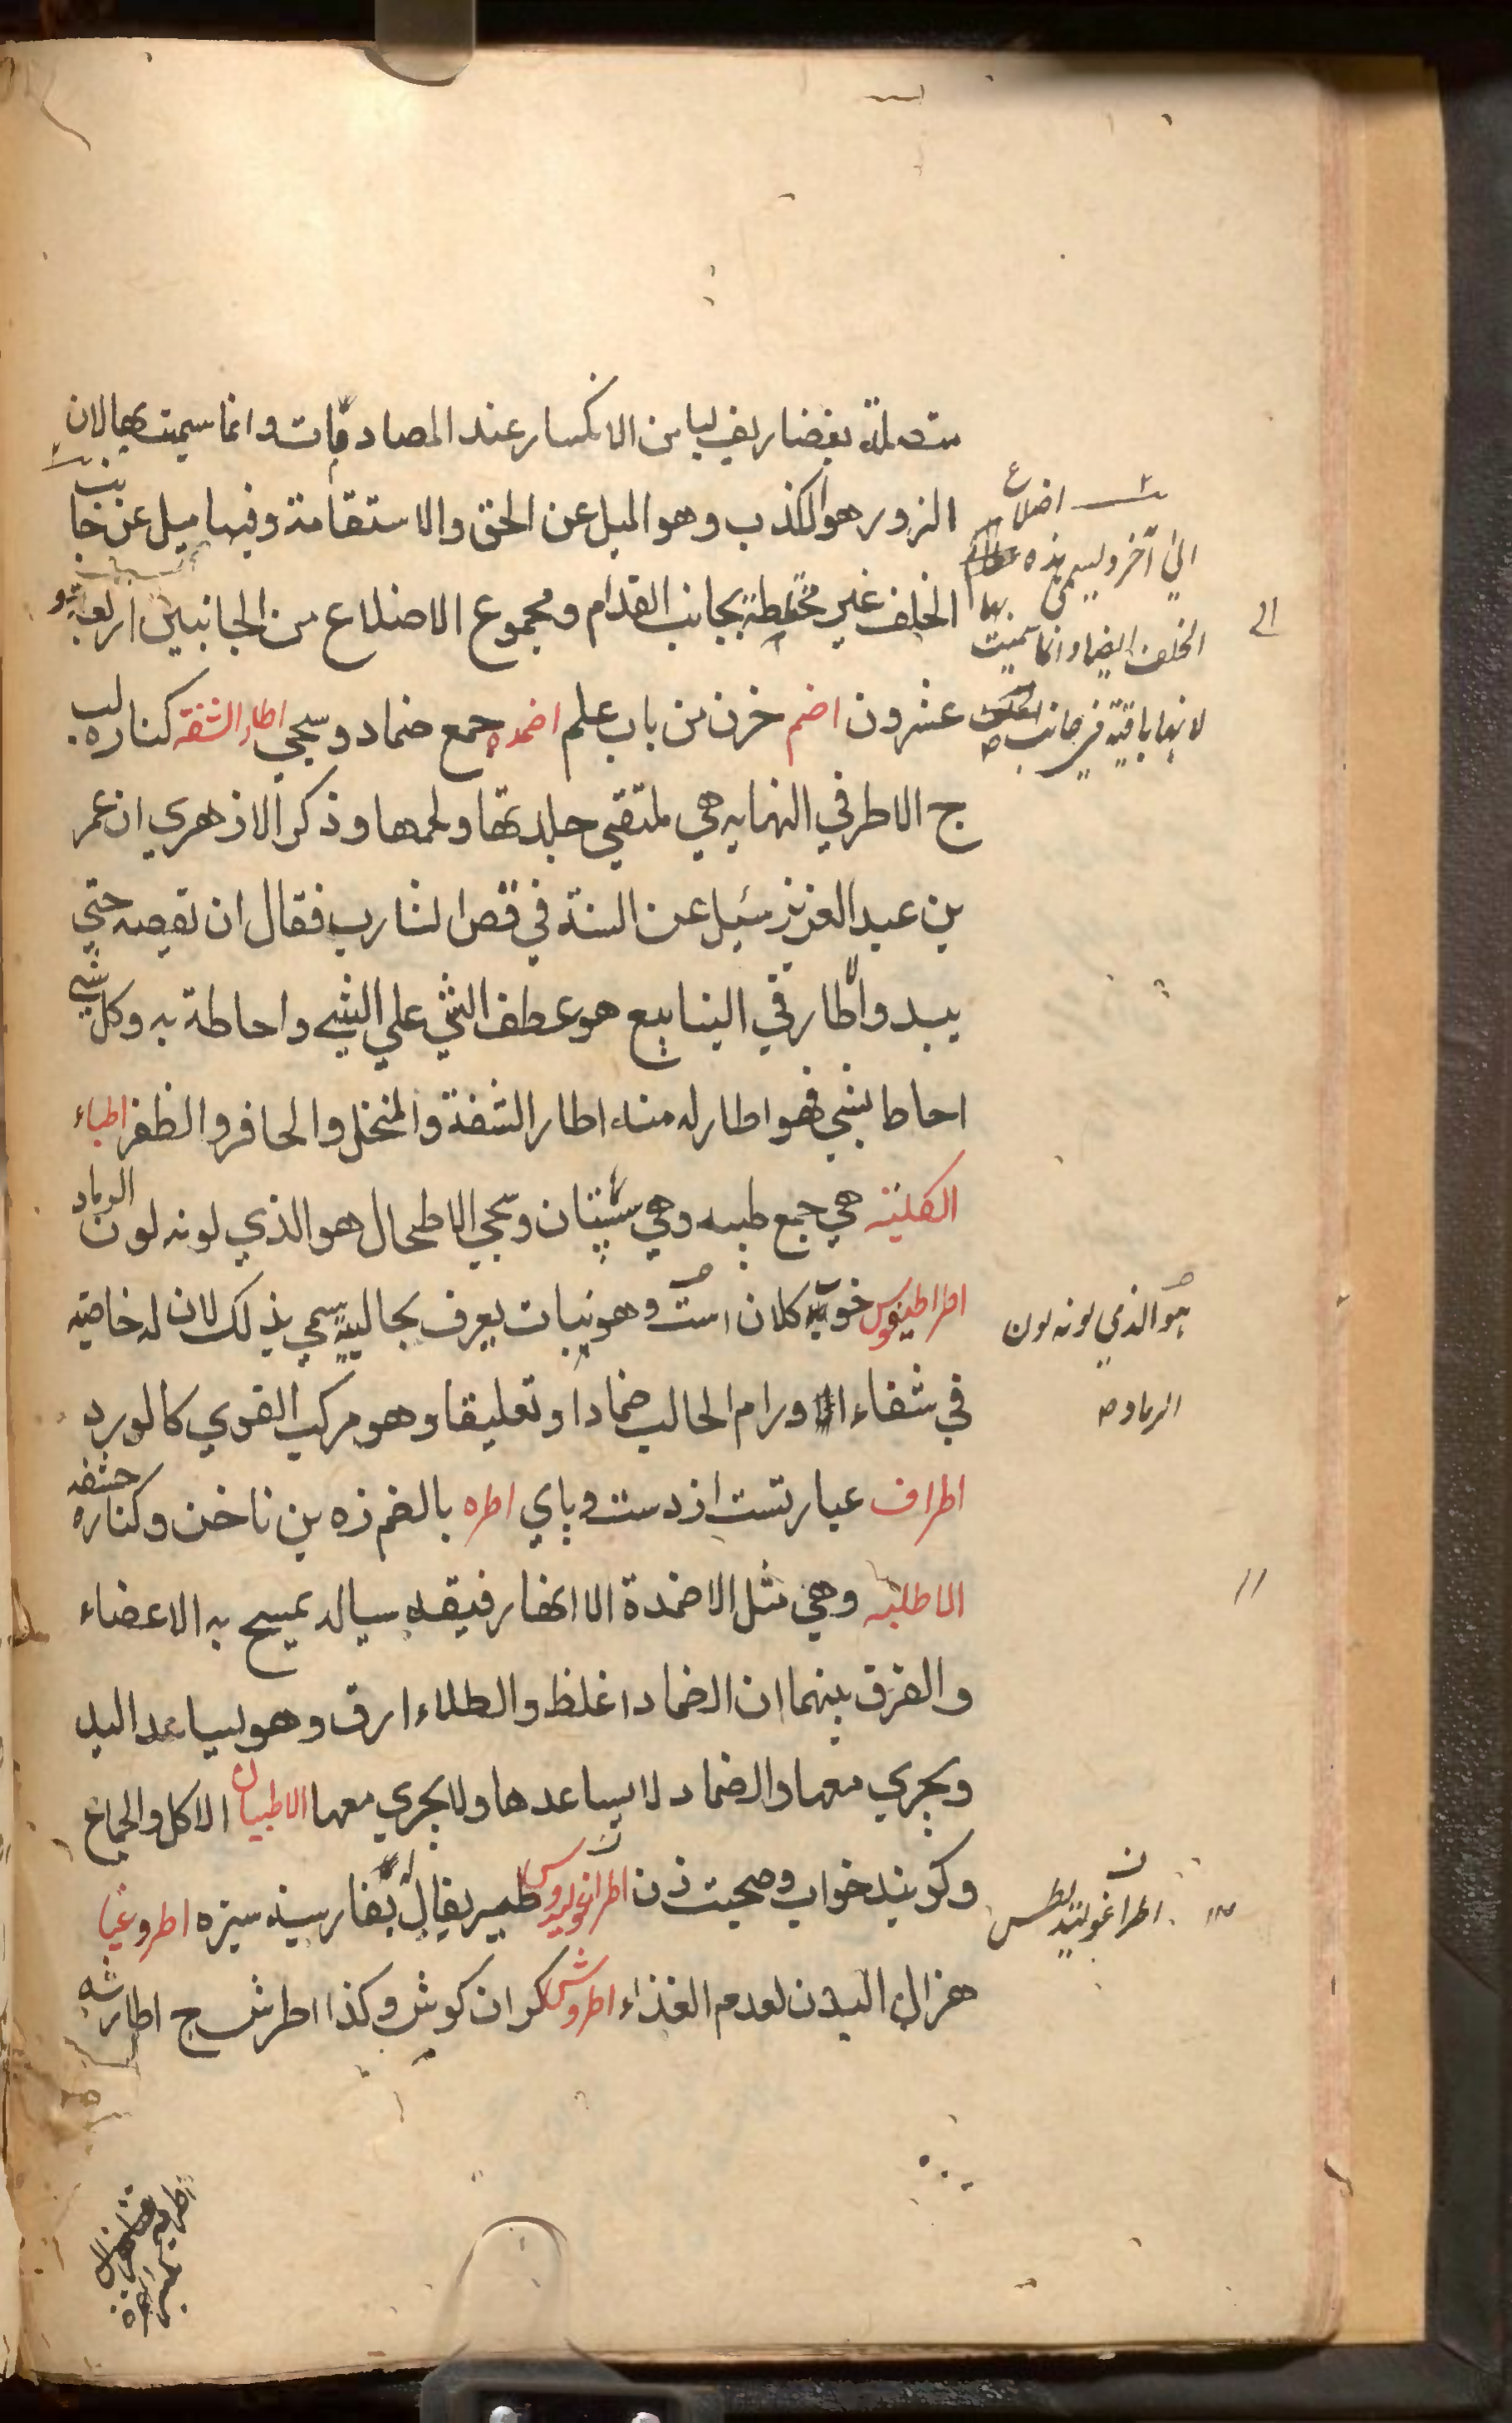 متصلة بغضاريف ليامن الانكسار عند المصادمات وانما سميت بها لان
الزور هو الكذب وهو الميل عن الحق والاستقامة وفيها ميل عن جانب
الخلف غير محيطة بجانب القدام ومجموع الاضلاع من الجانبين اربعة و
عشرون اضم خزن من باب علم اضمده جمع ضماد وسيجي اطار الشفة كناره لب
ج الاطر في النهايه هي ملتقي جلدتها ولحمها وذكر الازهري ان عمر
بن عبد العزيز سئيل عن السنة في قص الشارب فقال ان تقصه حتي
يبدو اطار في الينابيع هو عطف الشي علي الشي واحاطة به وكل شي
احاط بشي فهو اطار له منه اطار الشفة والمنخل والحافر والظفر اطباء
الكلية هي جمع طبيه وهي سپتان وسيجي الاطحال هو الذي لونه لون الرماد
اطراطيقوس كلان است وهو نبات يعرف بحالبية سمي بذلك لان له خاصية
في شفاء اورام الحالب ضمادا وتعليقا وهو مركب القوي كالورد
اطراف عبارتست از دست وپاي اطره بالضم زه بن ناخن وكناره حشفه
الاطلية وهي مثل الاضمدة الا انها رقيقة سيالة يمسح به الاعضاء
والفرق بينهما ان الضماد اغلظ والطلاء ارق وهو يساعد اليد
ويجري معها والضماد لا يساعدها ولا يجري معها الاطيبان الاكل والجماع
وكويند خواب وصحبت زن طير يقال بفارسية سيزه اطروغيا
هزال البدن لعدم الغذاء اطروش كران كوش وكذا اطرش ج اطارشه
اضلاع
الي آخر ويسمي هذه
الخلف ايضا وانما سميت بها
لانها باقية في جانب
الي
هو الذي لونه لون
الرماد